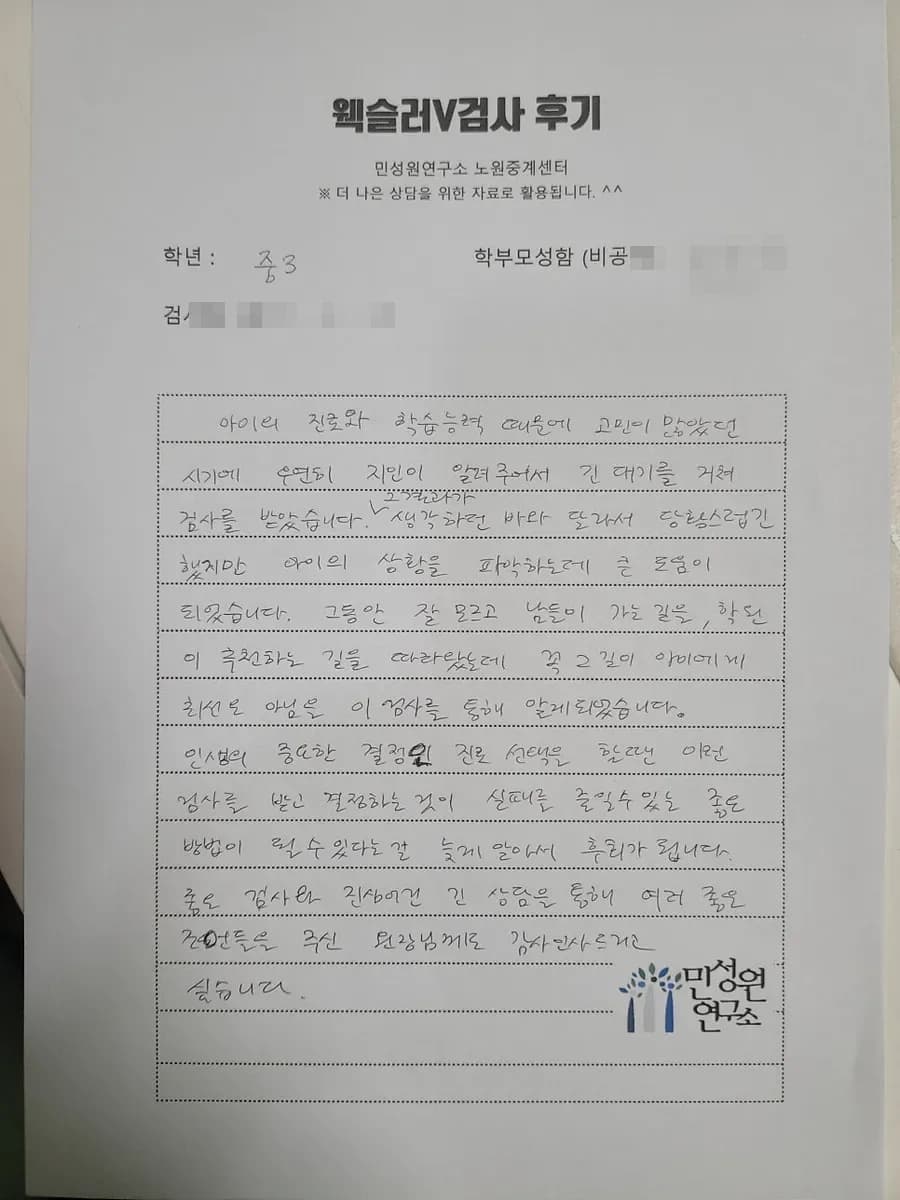 웩슬러V검사 후기
민성원연구소 노원중계센터
※ 더 나은 상담을 위한 자료로 활용됩니다. ^^
학년 : 중3 학부모성함 (비공
검사
아이의 진로와 학습능력 때문에 고민이 많았던
시기에 우연히 지인이 알려주어서 긴 대기를 거쳐
검사를 받았습니다. 그 결과가 생각하던 바와 달라서 당황스럽긴
했지만 아이의 상황을 파악하는데 큰 도움이
되었습니다. 그동안 잘 모르고 남들이 가는 길을, 학원
이 추천하는 길을 따라왔는데 꼭 그 길이 아이에게
최선은 아님을 이 검사를 통해 알게되었습니다.
인생의 중요한 결정인 진로 선택을 할때엔 이런
검사를 받고 결정하는 것이 실패를 줄일수있는 좋은
방법이 될 수 있다는 걸 늦게 알아서 후회가 됩니다.
좋은 검사와 진심어린 긴 상담을 통해 여러 좋은
조언들을 주신 원장님께도 감사인사드리고
싶습니다.
민성원
연구소